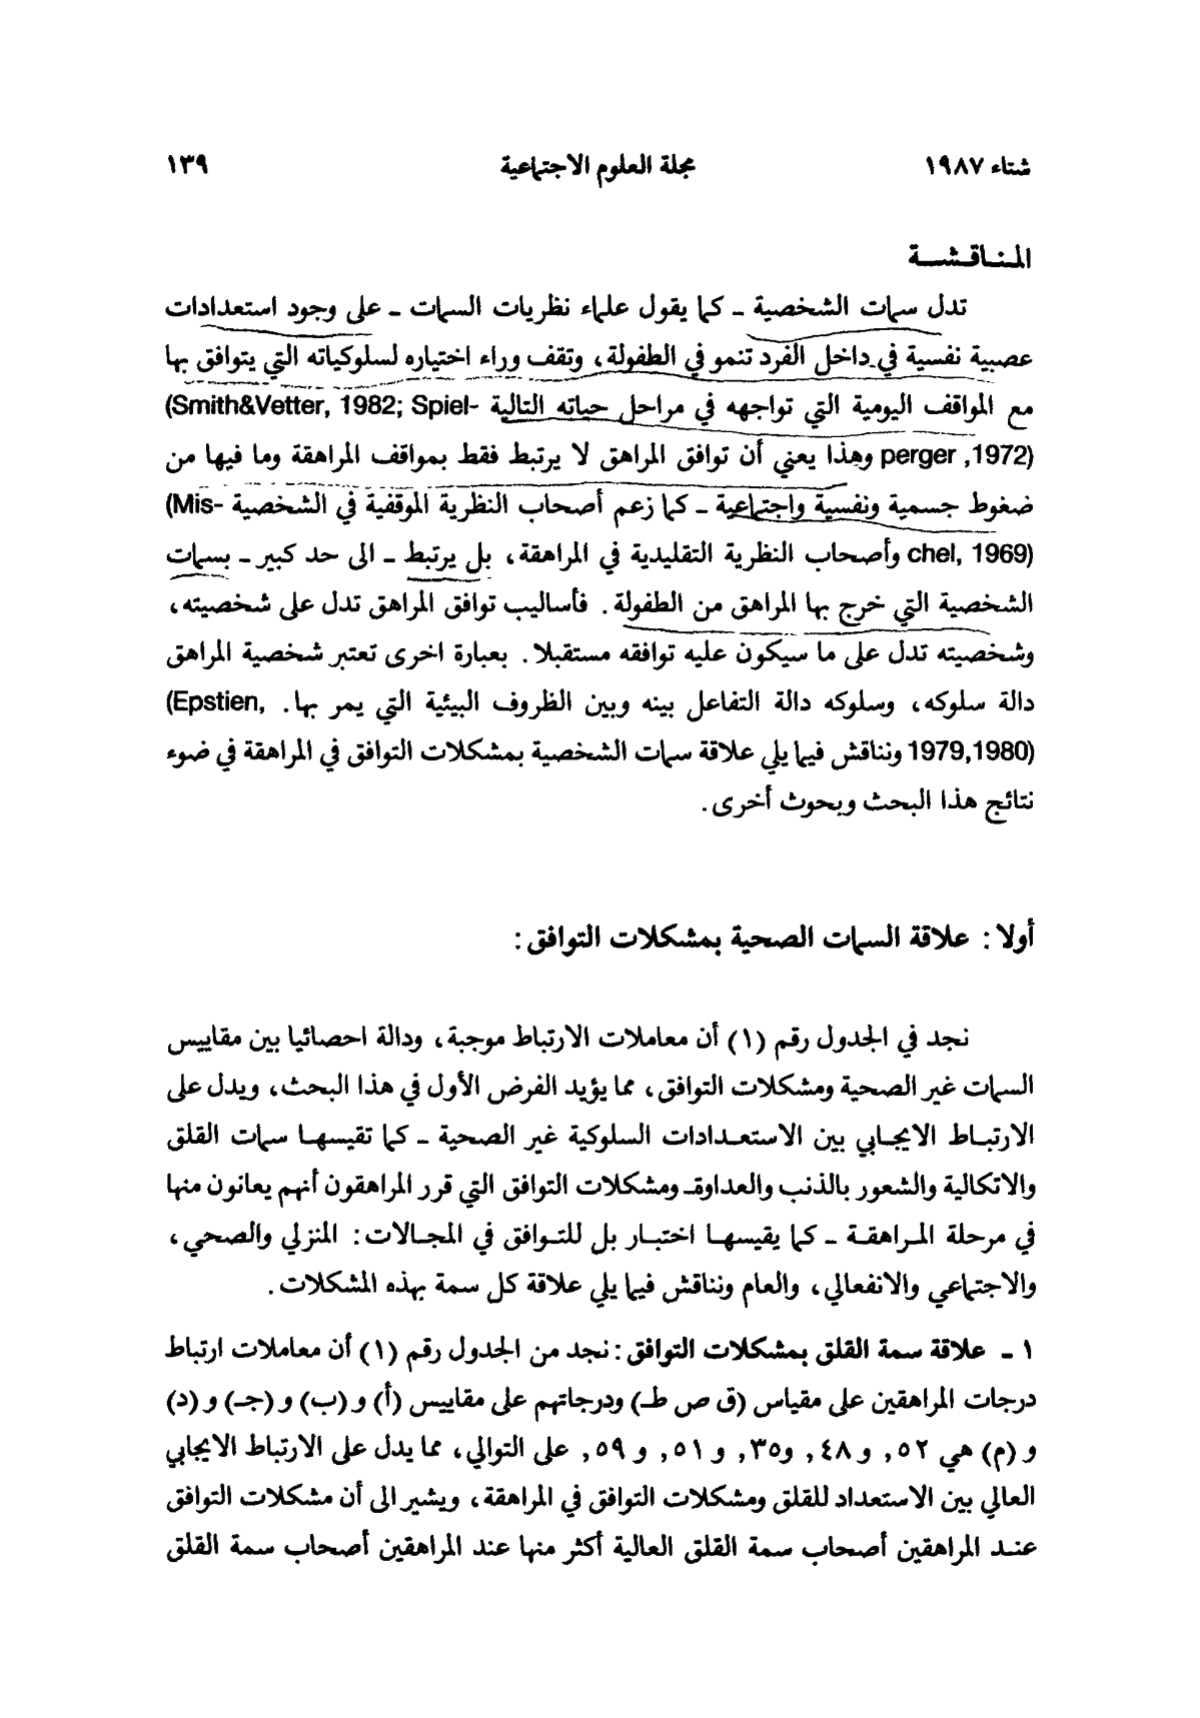 شتاء ١٩٨٧ مجلة العلوم الاجتماعية ١٣٩
المناقشة
تدل سمات الشخصية ـ كما يقول علماء نظريات السمات ـ على وجود استعدادات
عصبية نفسية في داخل الفرد تنمو في الطفولة، وتقف وراء اختياره لسلوكياته التي يتوافق بها
مع المواقف اليومية التي تواجهه في مراحل حياته التالية (Smith&Vetter, 1982; Spiel-
perger ,1972) وهذا يعني أن توافق المراهق لا يرتبط فقط بمواقف المراهقة وما فيها من
ضغوط جسمية ونفسية واجتماعية ـ كما زعم أصحاب النظرية الموقفية في الشخصية (Mis-
chel, 1969) وأصحاب النظرية التقليدية في المراهقة، بل يرتبط ـ الى حد كبير ـ بسمات
الشخصية التي خرج بها المراهق من الطفولة. فأساليب توافق المراهق تدل على شخصيته،
وشخصيته تدل على ما سيكون عليه توافقه مستقبلا. بعبارة اخرى تعتبر شخصية المراهق
دالة سلوكه، وسلوكه دالة التفاعل بينه وبين الظروف البيئية التي يمر بها. (Epstien,
1979,1980) ونناقش فيما يلي علاقة سمات الشخصية بمشكلات التوافق في المراهقة في ضوء
نتائج هذا البحث وبحوث أخرى.
أولا: علاقة السمات الصحية بمشكلات التوافق:
نجد في الجدول رقم (١) أن معاملات الارتباط موجبة، ودالة احصائيا بين مقاييس
السمات غير الصحية ومشكلات التوافق، مما يؤيد الفرض الأول في هذا البحث، ويدل على
الارتباط الايجابي بين الاستعدادات السلوكية غير الصحية ـ كما تقيسها سمات القلق
والاتكالية والشعور بالذنب والعداوة ـ ومشكلات التوافق التي قرر المراهقون أنهم يعانون منها
في مرحلة المراهقة ـ كما يقيسها اختبار بل للتوافق في المجالات: المنزلي والصحي،
والاجتماعي والانفعالي، والعام ونناقش فيما يلي علاقة كل سمة بهذه المشكلات.
١ ـ علاقة سمة القلق بمشكلات التوافق: نجد من الجدول رقم (١) أن معاملات ارتباط
درجات المراهقين على مقياس (ق ص ط) ودرجاتهم على مقاييس (أ) و (ب) و (جـ) و (د)
و (م) هي ٥٢, و ٤٨, و٣٥, و ٥١, و ٥٩, على التوالي، مما يدل على الارتباط الايجابي
العالي بين الاستعداد للقلق ومشكلات التوافق في المراهقة، ويشير الى أن مشكلات التوافق
عند المراهقين أصحاب سمة القلق العالية أكثر منها عند المراهقين أصحاب سمة القلق